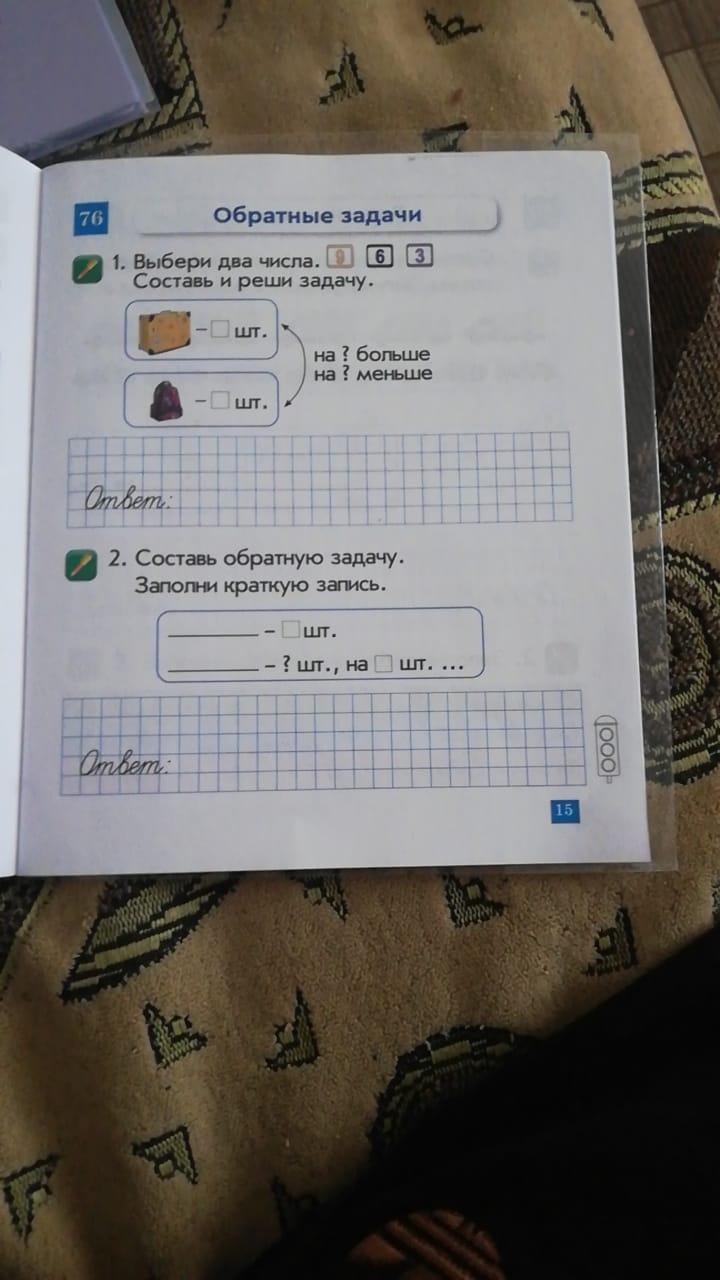 76 Обратные задачи
1. Выбери два числа. 9 6 3
Составь и реши задачу.
– шт.
на ? больше
на ? меньше
– шт.
Ответ:
2. Составь обратную задачу.
Заполни краткую запись.
– шт.
– ? шт., на шт. ...
Ответ:
15